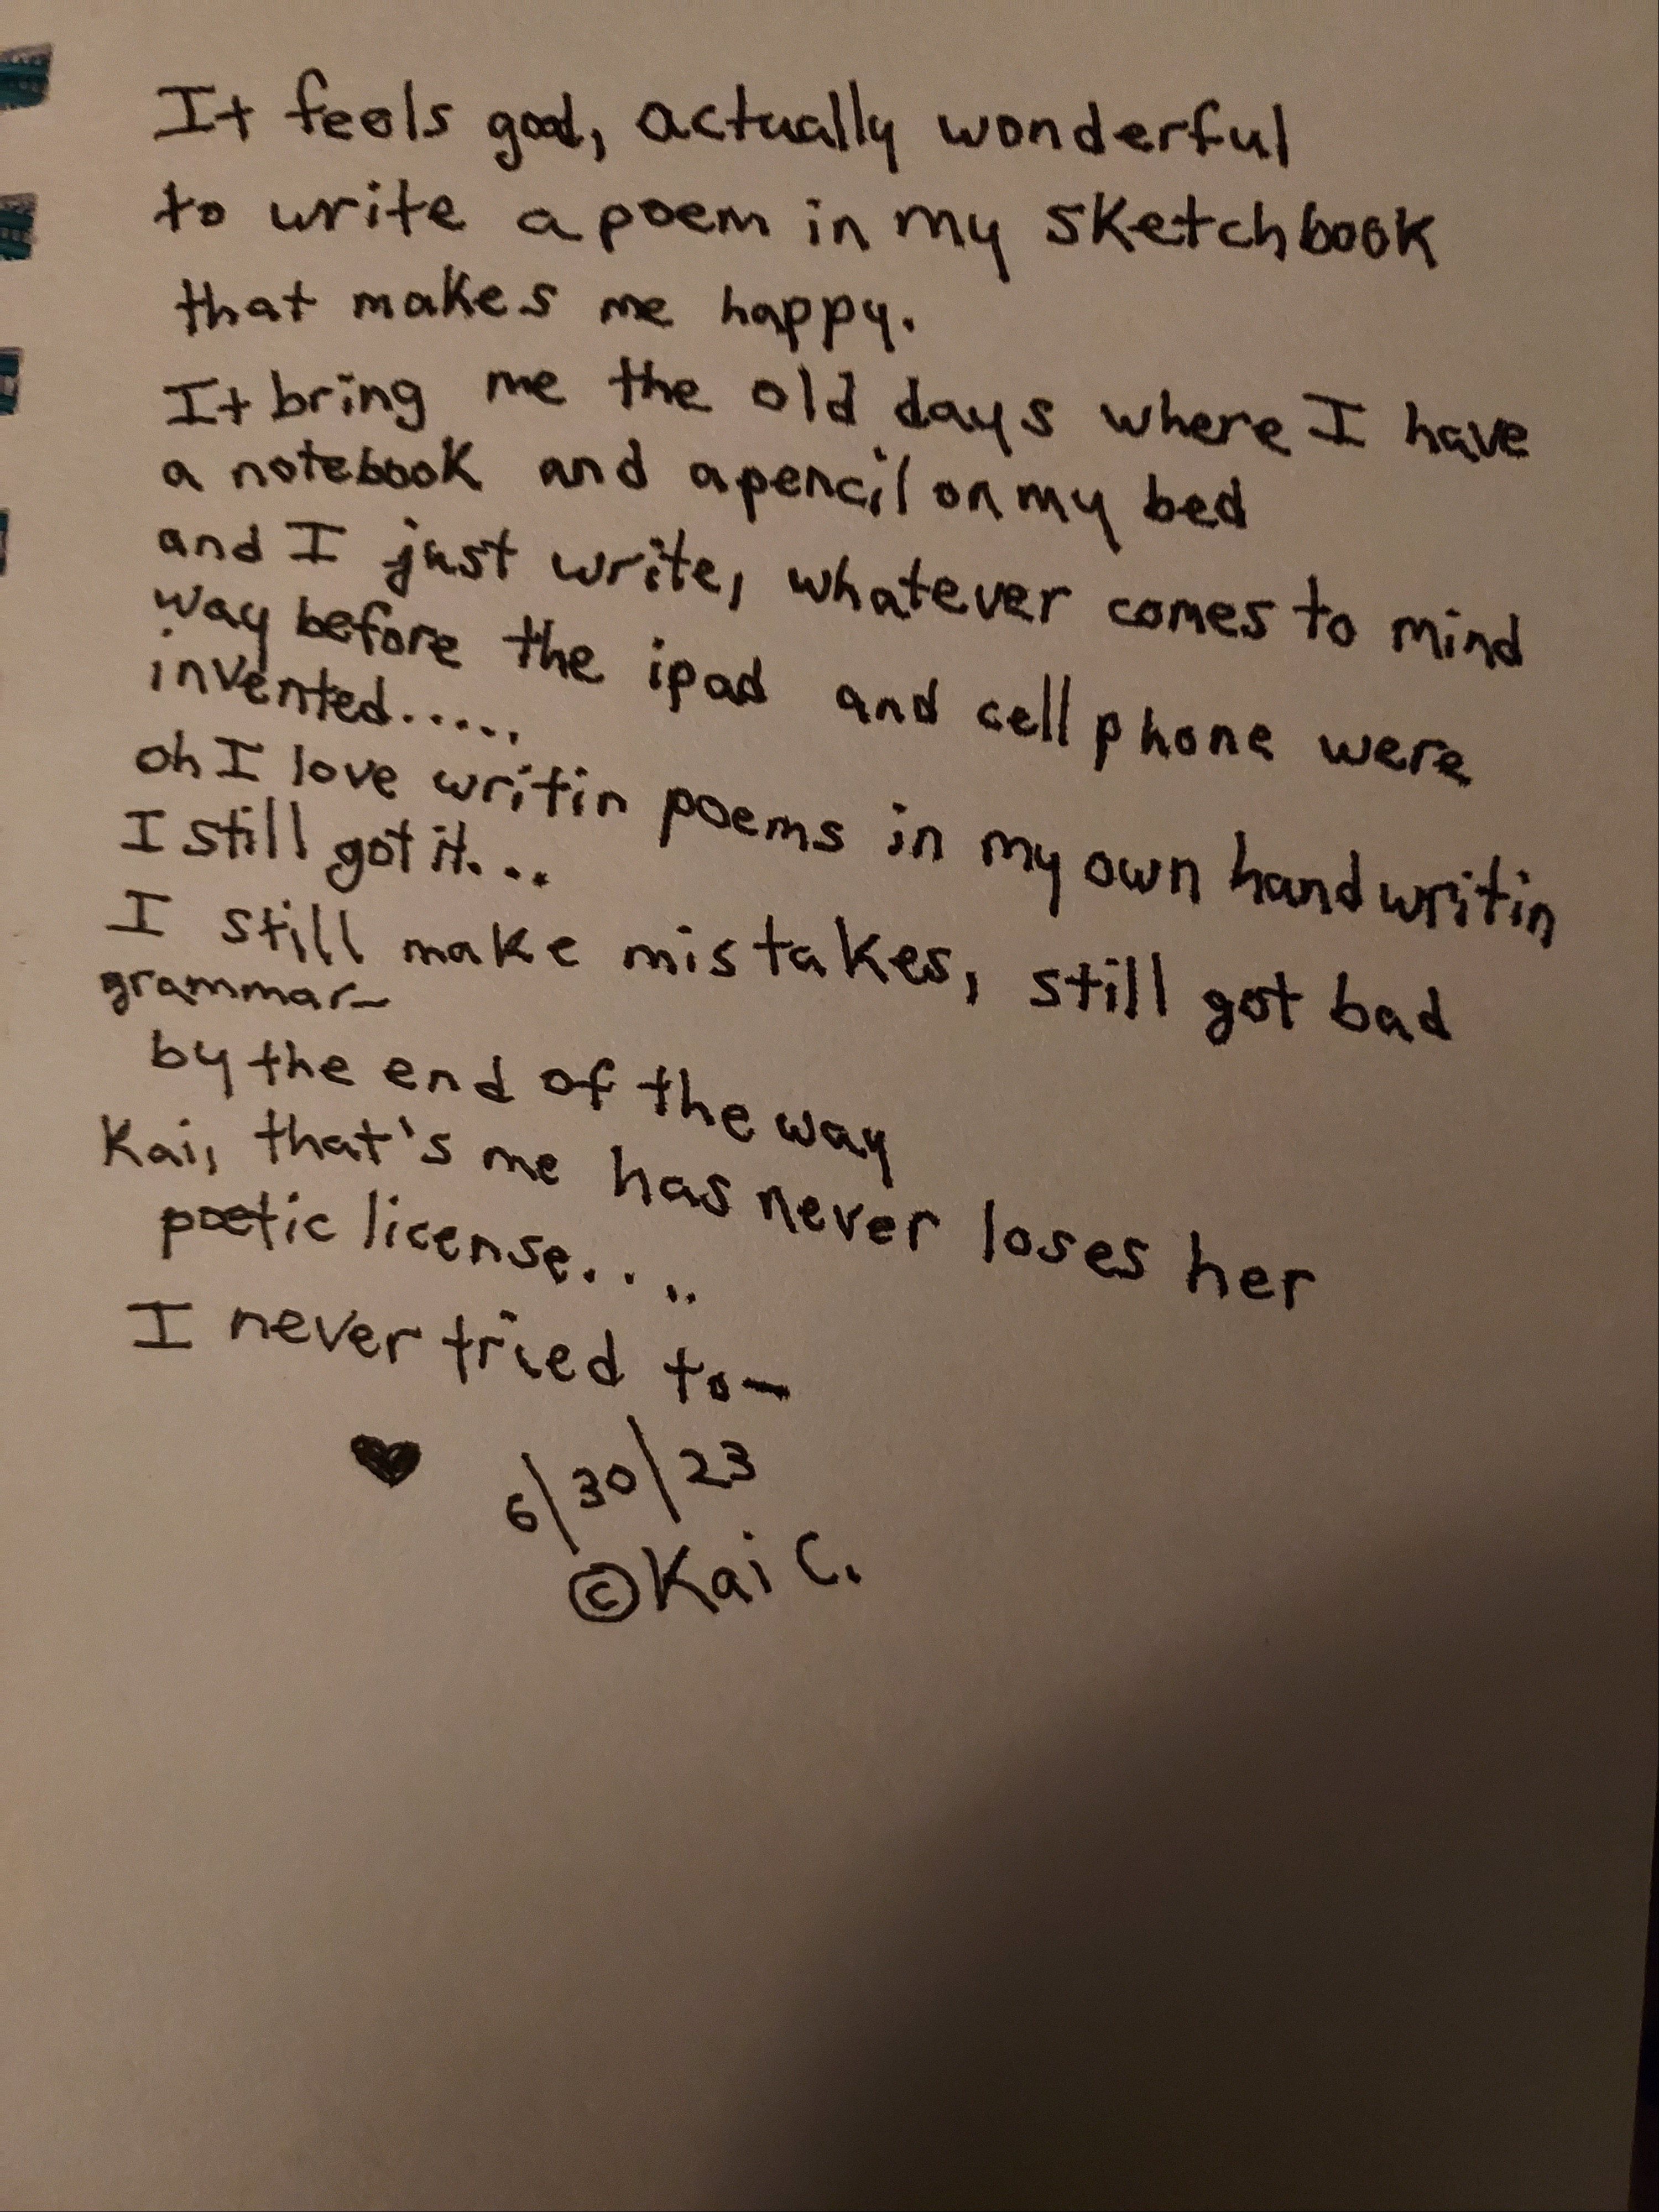 It feels good, actually wonderful
to write a poem in my sketchbook
that makes me happy.
It bring me the old days where I have
a notebook and a pencil on my bed
and I just write, whatever comes to mind
way before the ipad and cell phone were
invented.....
oh I love writin poems in my own handwritin
I still got it...
I still make mistakes, still got bad
grammar—
by the end of the way
Kai, that's me has never loses her
poetic license....
I never tried to—
♥ 6/30/23
©Kai C.